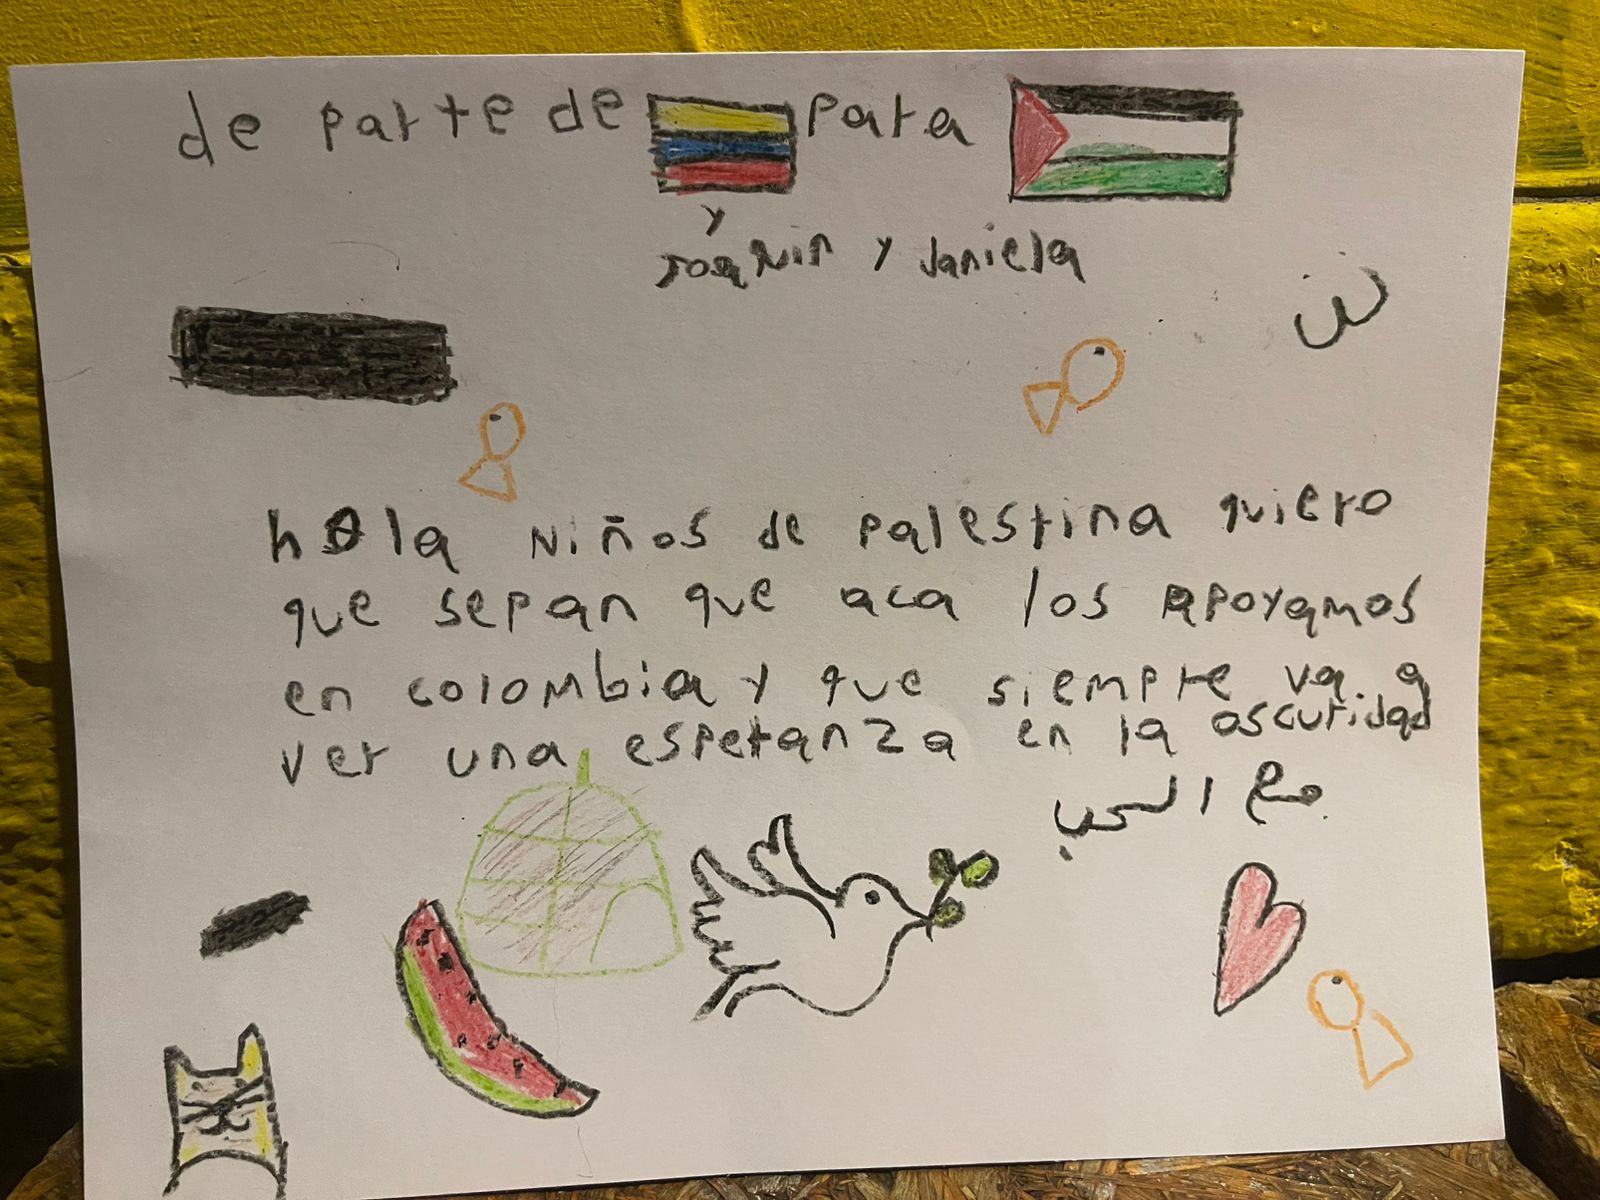 de parte de para
y
Joaquin y Daniela
hola niños de palestina quiero
que sepan que aca los apoyamos
en colombia y que siempre va a
ver una esperanza en la oscuridad
مع الحب